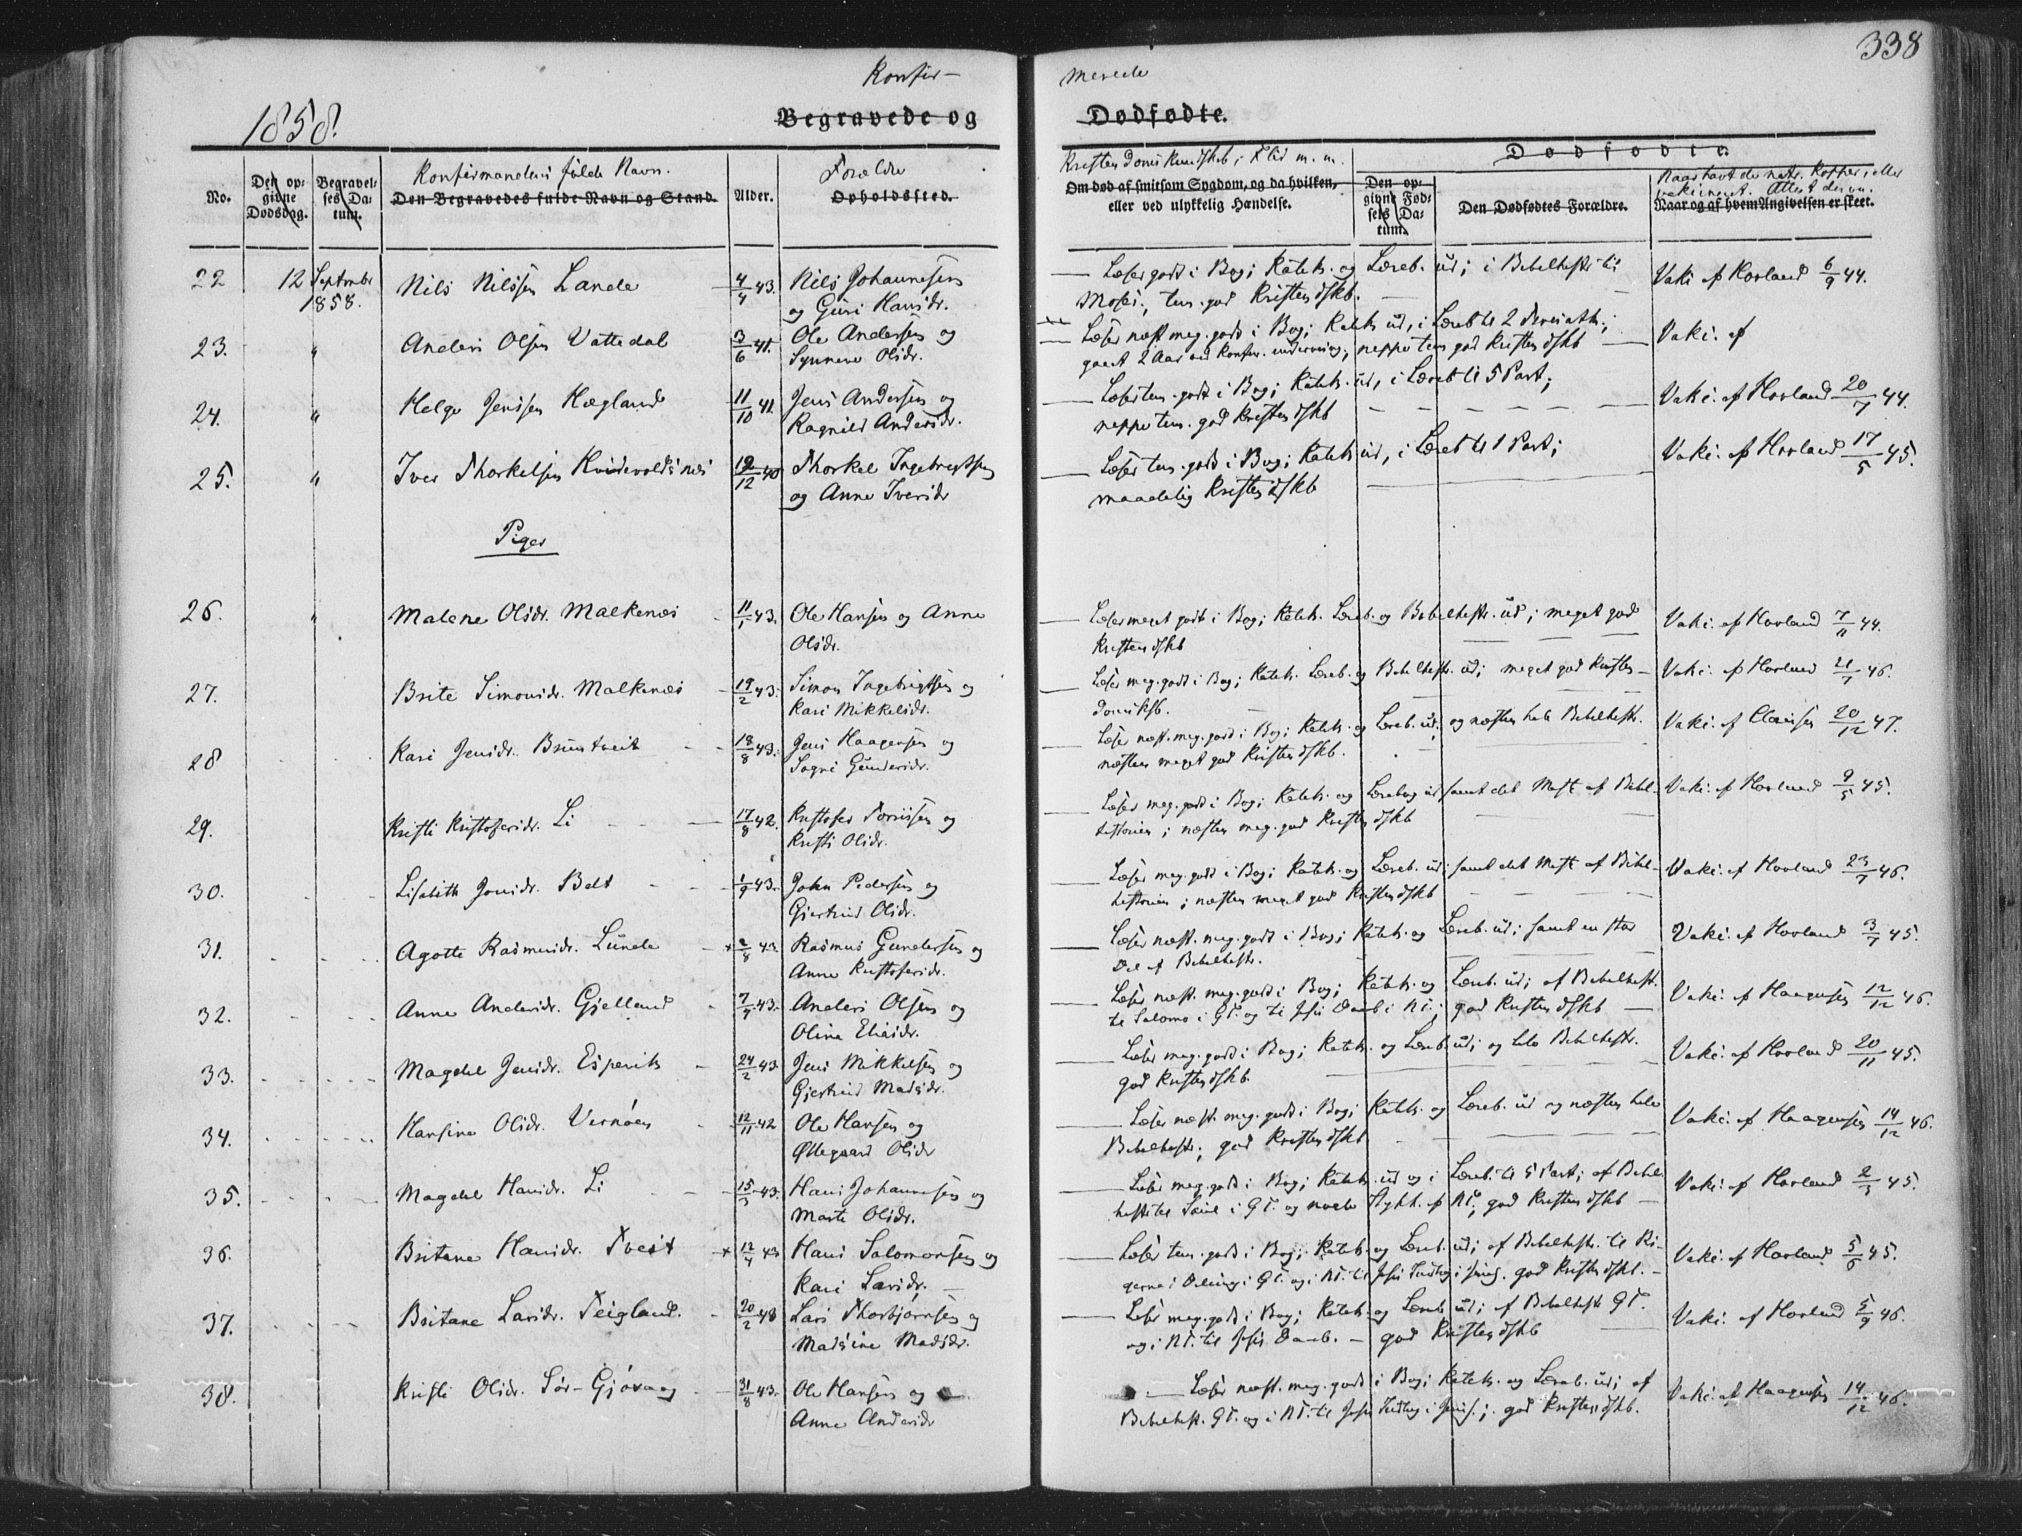 338
Konfir-
merede
1858.
Begravede og
Dødfødte.
No.
Den op-
givne
Dødsdag.
Begravel-
ses Da-
tum.
Konfirmandens fulde Navn.
Den Begravedes fulde Navn og Stand.
Alder.
Forældre
Opholdssted.
Kristendomskundskb, Flid m. m.
Om død af smitsom Sygdom, og da hvilken,
eller ved ulykkelig Hændelse.
Dødfødte.
Den op-
givne Fød-
sels Da-
tum.
Den Dødfødtes Forældre.
Naar havt de natr. Kopper, eller
vakcineret. Attest derom.
Naar og af hvem Angivelsen er skeet.
22 12 Septembr Nils Nilssen Lande 4/4 43. Nils Johannesen
1858. og Guri Hansdr.
Læser godt i Bog; Katek. og Læreb. ud; i Bibelhistr til
Mose; tem. god Kristendskb.
Vaki af Hovland 6/9 44.
23. " Anders Olsen Vattedal 3/6 41. Ole Andersen og
Synneve Olsdr.
Læser næst. meg. godt i Bog; Katek ud, i Læreb til 2 Parten;
gaaet 2 Aar til Konfir. undervisning, neppe tem god Kristendskb
Vaki. af
24. " Helge Jenssen Hægland 11/10 41. Jens Andersen og
Ragnild Andersdr.
Læser tem. godt i Bog; Katek. ud, i Læreb til 5 Part;
neppe tem. god Kristendskb
Vaki. af Hovland 20/7 44.
25. " Iver Thorkelsen Hvidevoldsnæs 19/12 40 Thorkel Ingebregtsen
og Anne Iversdr
Læser tem. godt i Bog; Katek ud, i Læreb til 1 Part;
maadelig Kristendskb
Vaki. af Hovland 17/5 45.
Piger
26. " Malene Olsdr. Malkenæs 11/1 43. Ole Hansen og Anne
Olsdr.
Læser meget godt i Bog; Katek. Læreb. og Bibelhistr. ud; meget god
Kristendskb
Vaki. af Hovland 7/11 44.
27. Brite Simonsdr. Malkenæs 19/2 43. Simon Ingebrigtsen og
Kari Mikkelsdr.
Læser meg. godt i Bog; Katek. Læreb. og Bibelhistr. ud; meget god Kristen-
domskb.
Vaki. af Hovland 21/7 46.
28 Kari Jensdr. Bruntveit 18/8 43. Jens Haagensen og
Sogni Gundersdr.
Læser næst. meg. godt i Bog; Katek. og Læreb. ud; og næsten hele Bibelhistr.
næsten meget god Kristendskb.
Vaki. af Clausen 20/12 47.
29. Kristi Kristofersdr. Li 17/8 42. Kristofer Torrissen og
Kristi Olsdr.
Læser meg. godt i Bog; Katek. og Lærebog ud samt det Mest af Bibel-
historien; næsten meg. god Kristendskb
Vaki. af Hovland 9/5 45.
30. Lisabith Jonsdr. Belt 1/9 43. John Pedersen og
Gjertrud Olsdr.
Læser meg. godt i Bog; Katek. og Læreb. ud; samt det Mest af Bibl-
historien; næsten meget god Kristendskb
Vaki. af Hovland 23/7 46.
31. Agotte Rasmusdr. Lunde 2/8 43. Rasmus Gundersen og
Anne Kristofersdr.
Læser næst. meg. godt i Bog; Katek. og Læreb. ud; samt en stor
Del af Bibelhistr.
Vaki. af Hovland 3/7 45.
32. Anne Andersdr. Gjelland 7/7 43. Anders Olsen og
Oline Eliasdr.
Læser næst. meg. godt i Bog; Katek. og Læreb. ud; af Bibelhistr.
til Salomo i GT. og til Jesu Daab i NT.; god Kristendskb
Vaki. af Haagensen 12/12 46.
33. Magdel Jensdr. Espevik 24/2 43. Jens Mikkelsen og
Gjertrud Madsdr.
Læser meg. godt i Bog; Katek. og Læreb ud; og hele Bibelhistr.
god Kristendskb.
Vaki. af Hovland 20/11 45.
34. Hansine Olsdr. Vernøen 12/11 42 Ole Hansen og
Øllegaard Olsdr
Læser næst. meg. godt i Bog; Katek. og Læreb. ud og næsten hele
Bibelhistr.; god Kristendskb
Vaki. af Haagensen 14/12 46.
35. Magdel Hansdr. Li 15/3 43. Hans Johannesen og
Marte Olsdr.
Læser meg. godt i Bog; Katek. ud og i Læreb. til 5 Part; af Bibel
histr til Saul i GT. og noele Stykk. af NT., god Kristendskb
Vaki. af Hovland 2/3 45.
36. Britane Hansdr. Tveit 12/4 43 Hans Salomonsen og
Kari Larsdr.
Læser tem. godt i Bog; Katek. og Læreb. ud; af Bibelhistr. til Ri-
gernes Deling i GT. og i NT. til Jesu Indtog i Jerus. god Kristendskb.
Vaki. af Hovland 5/6 45.
37. Britane Larsdr. Teigland. 20/2 43 Lars Thorbjørnsen og
Madsine Madsdr.
Læser meg. godt i Bog; Katek. og Læreb. ud; af Bibelhistr GT.
og i NT. til Jesu Daab. god Kristendskb
Vaki. af Hovland 5/9 46.
38. Kristi Olsdr. Sør-Gjøvaag 31/8 43. Ole Hansen og
Anne Andersdr
Læser næst. meg. godt i Bog; Katek. og Læreb. ud; af
Bibelhist. GT. og i NT. til Jesu Indtog i Jerus.; god Kristendskb.
Vaki. af Haagensen 14/12 46.